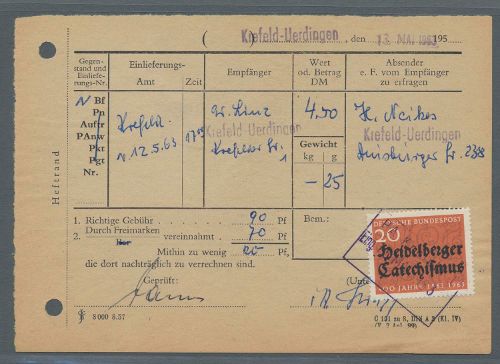 ( Krefeld-Uerdingen ) , den 13. MAI 1963 195
Gegen-
stand und
Einliefe-
rungs-Nr.
Einlieferungs-
Amt
Zeit
Empfänger
Wert
od. Betrag
DM
Absender
e. F. vom Empfänger
zu erfragen
Bf
Pn
Auftr
PAnw
Pkt
Pgt
Nr.
Krefeld
12.5.63
17⁰⁰
Krefeld-Uerdingen
Krefelder Str.
1
4,50
Gewicht
kg g
– 25
Krefeld-Uerdingen
Duisburger Str.
Heftrand
1. Richtige Gebühr 90 Pf
2. Durch Freimarken
vereinnahmt 70 Pf
Mithin zu wenig 20 Pf
die dort nachträglich zu verrechnen sind.
Bem.:
Geprüft:
(Unter
8000 8.57
C 131 zu 8, DIN A 5 (Kl. IV)
DEUTSCHE BUNDESPOST
20
Heidelberger
Catechismus
400 JAHRE 1563 1963